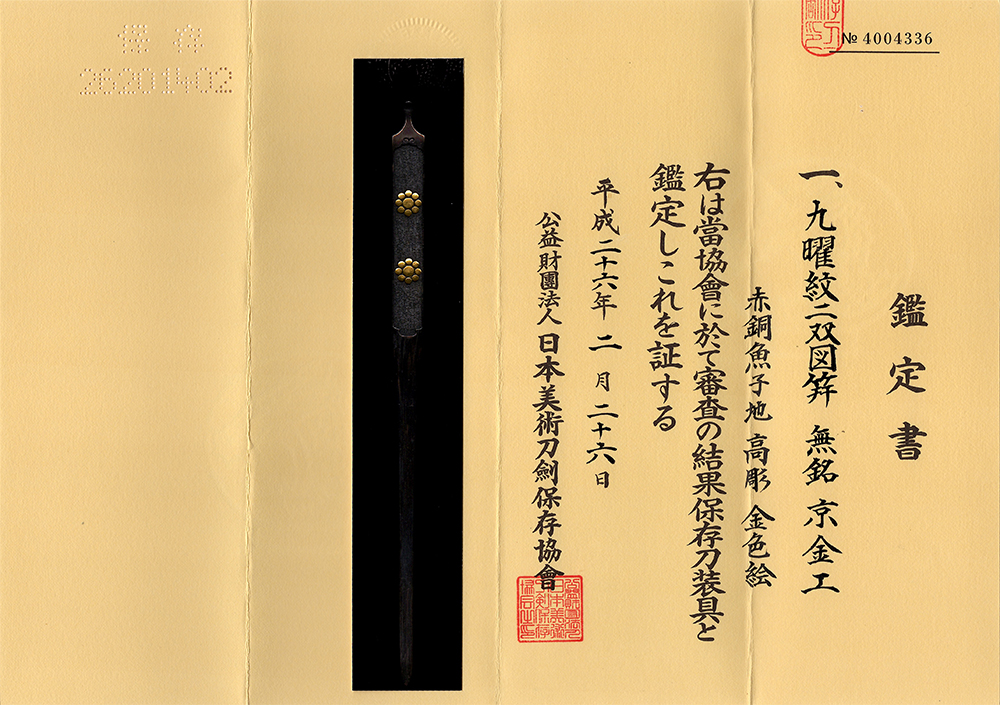 № 4004336
鑑定書
一、九曜紋二双図笄 無銘 京金工
赤銅魚子地 高彫 金色絵
右は當協會に於て審査の結果保存刀装具と
鑑定しこれを証する
平成二十六年 二月 二十六日
公益財團法人 日本美術刀劍保存協會
保存
26201402